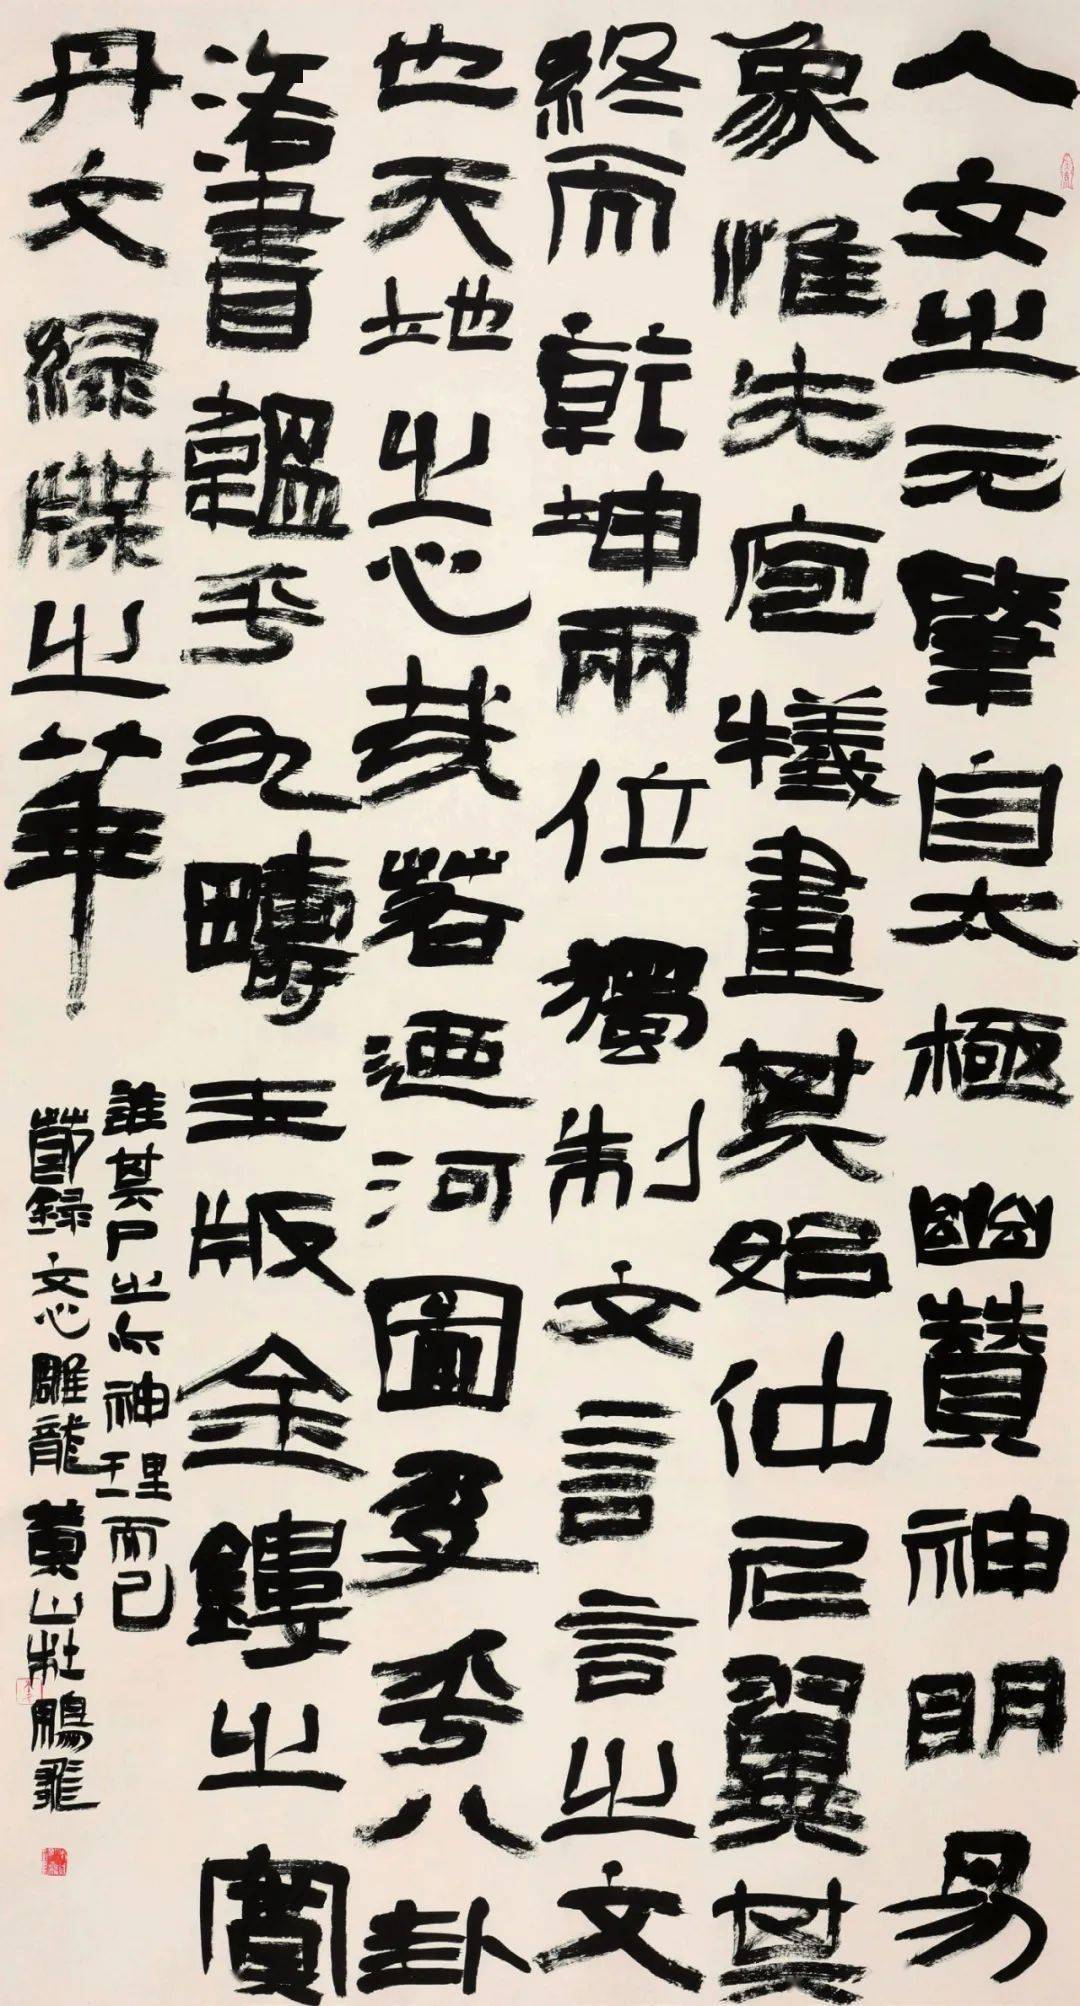 人文之元肇自太極幽贊神明易
象惟先庖犧畫其始仲尼翼其
終而乾坤兩位獨制文言言之文
也天地之心哉若迺河圖孕乎八卦
洛書韞乎九疇玉版金鏤之實
丹文綠牒之華
誰其尸之亦神理而已
節錄文心雕龍黃山杜鵬飛